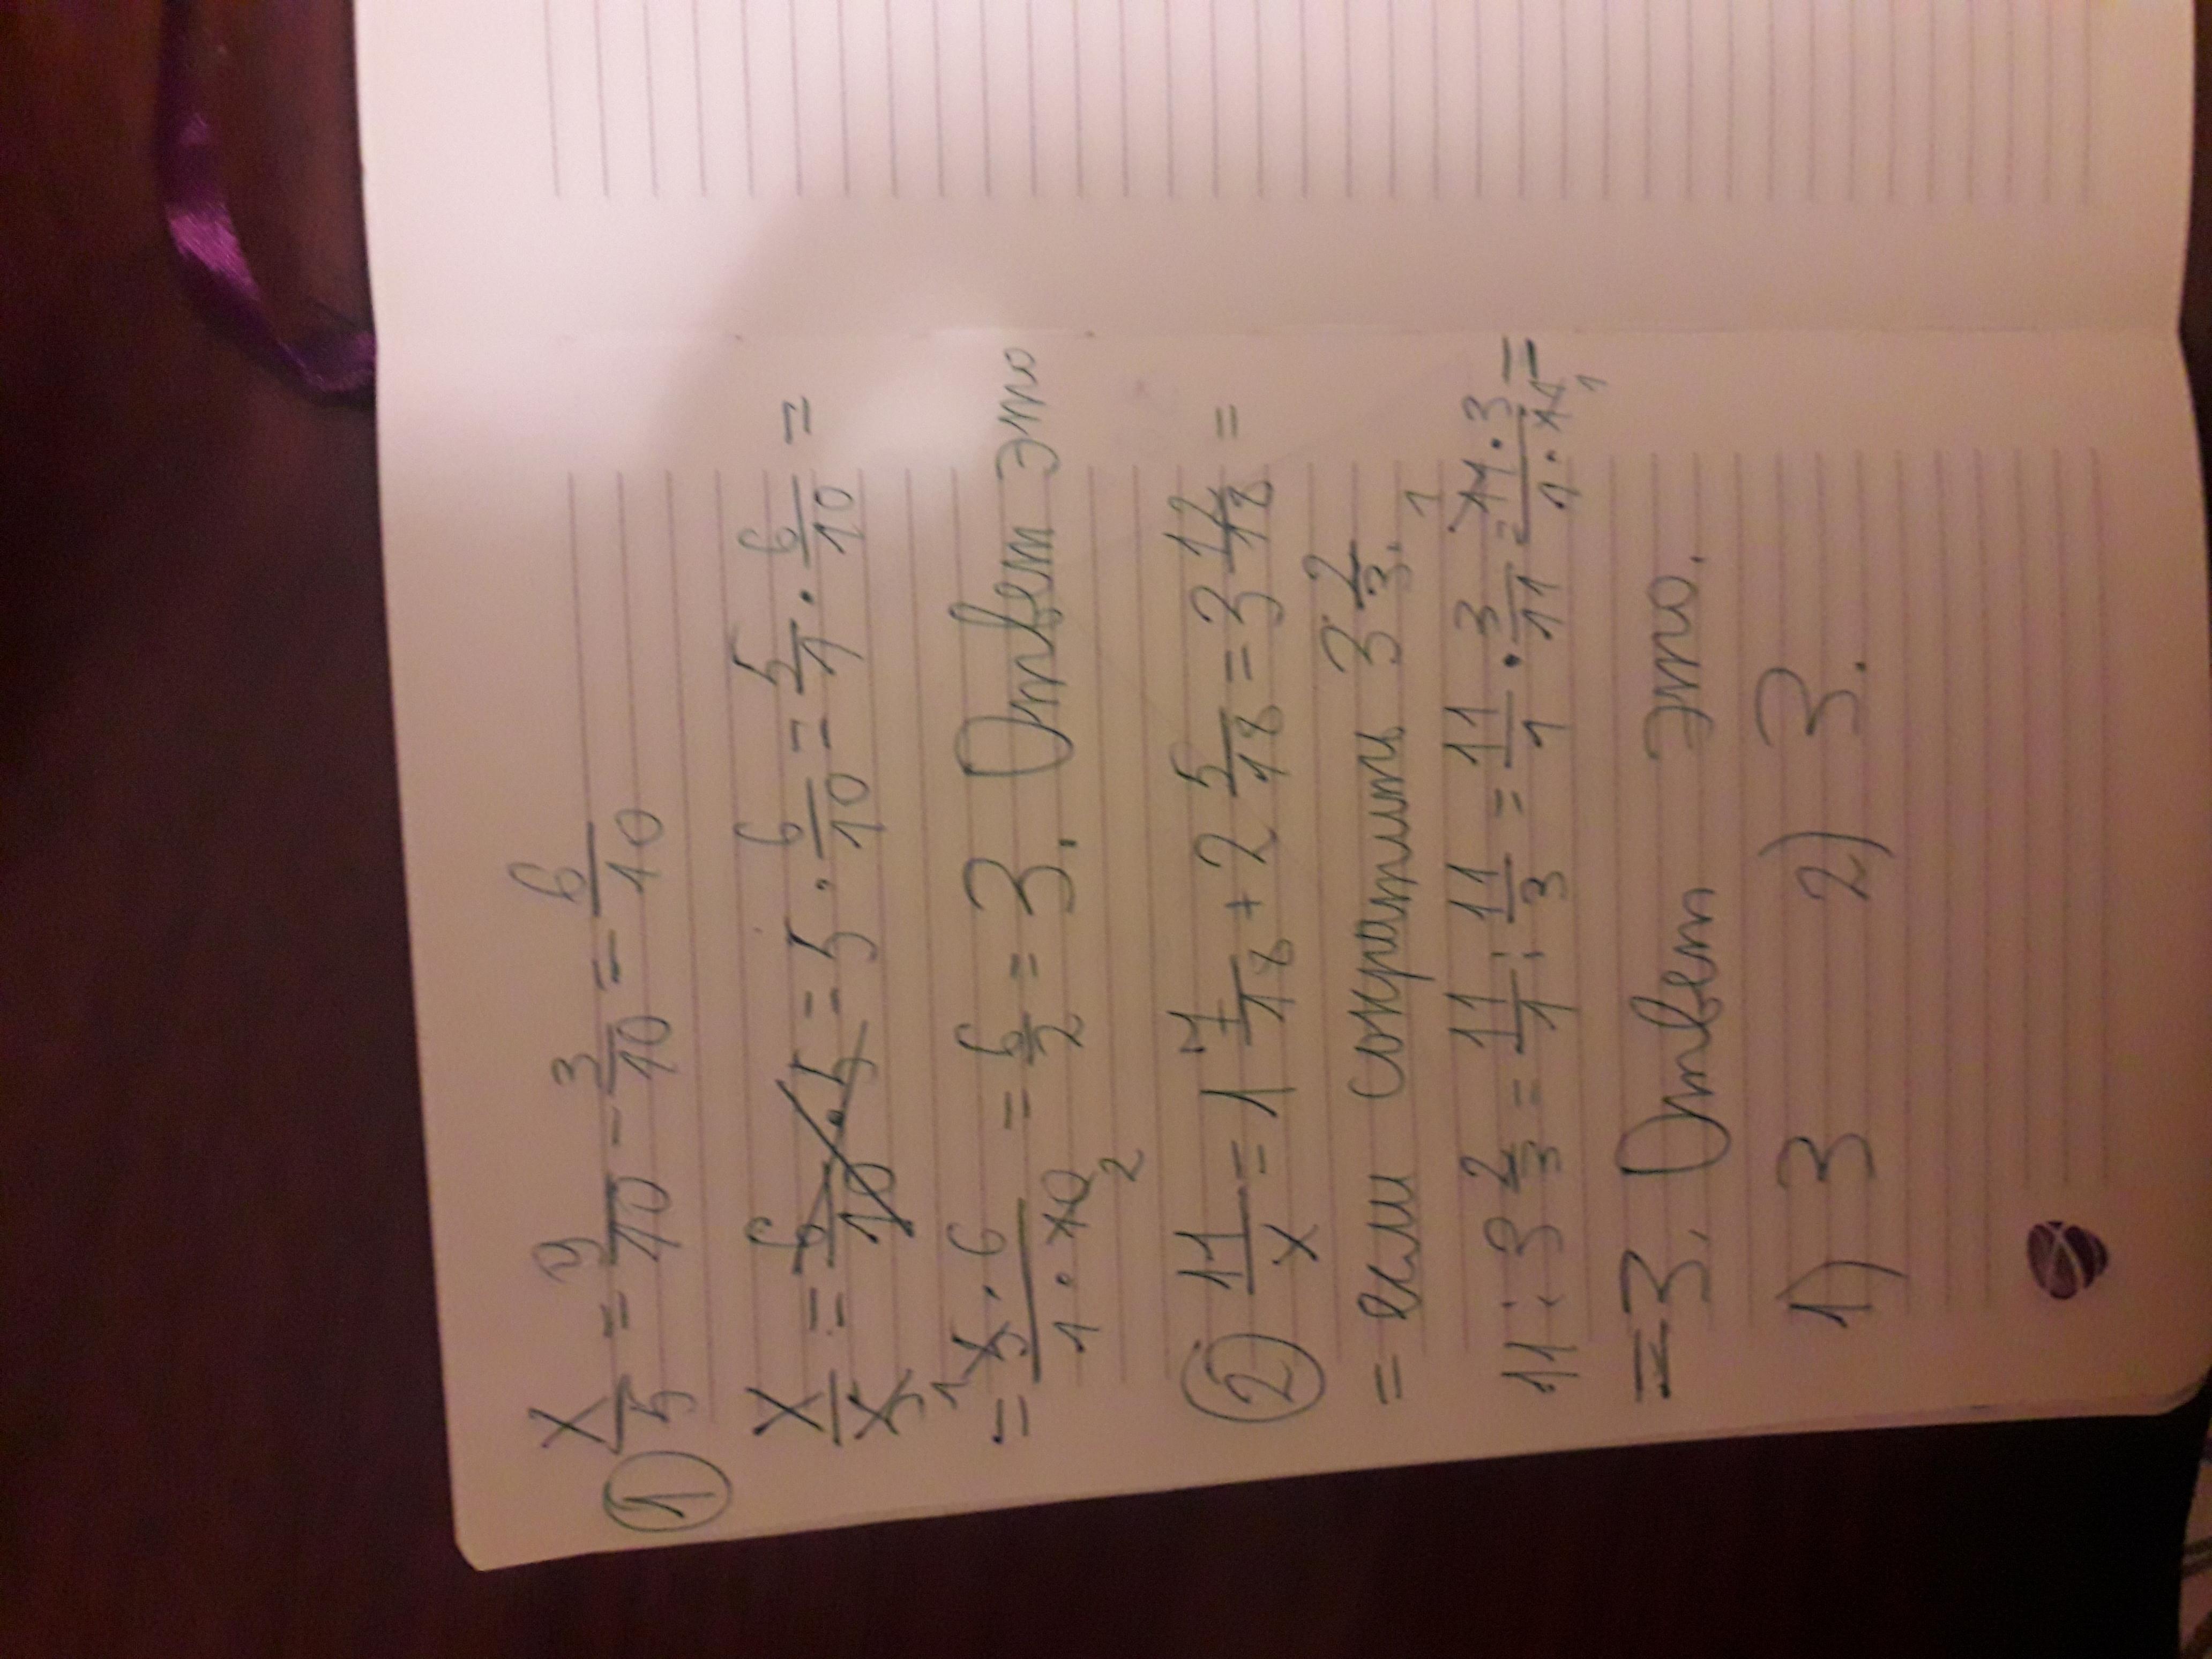 ① x/5 = 9/10 - 3/10 = 6/10
x/x = 6/10 · 5 = 5 · 6/10 = 5/1 · 6/10 =
= 5 · 6 / 1 · 10 = 6/2 = 3. Ответ это
② 11/x = 1 7/18 + 2 5/18 = 3 12/18 =
= если сократить 3 2/3.
11 : 3 2/3 = 11/1 : 11/3 = 11/1 · 3/11 = 11 · 3 / 1 · 11 =
= 3. Ответ это.
1) 3 2) 3.